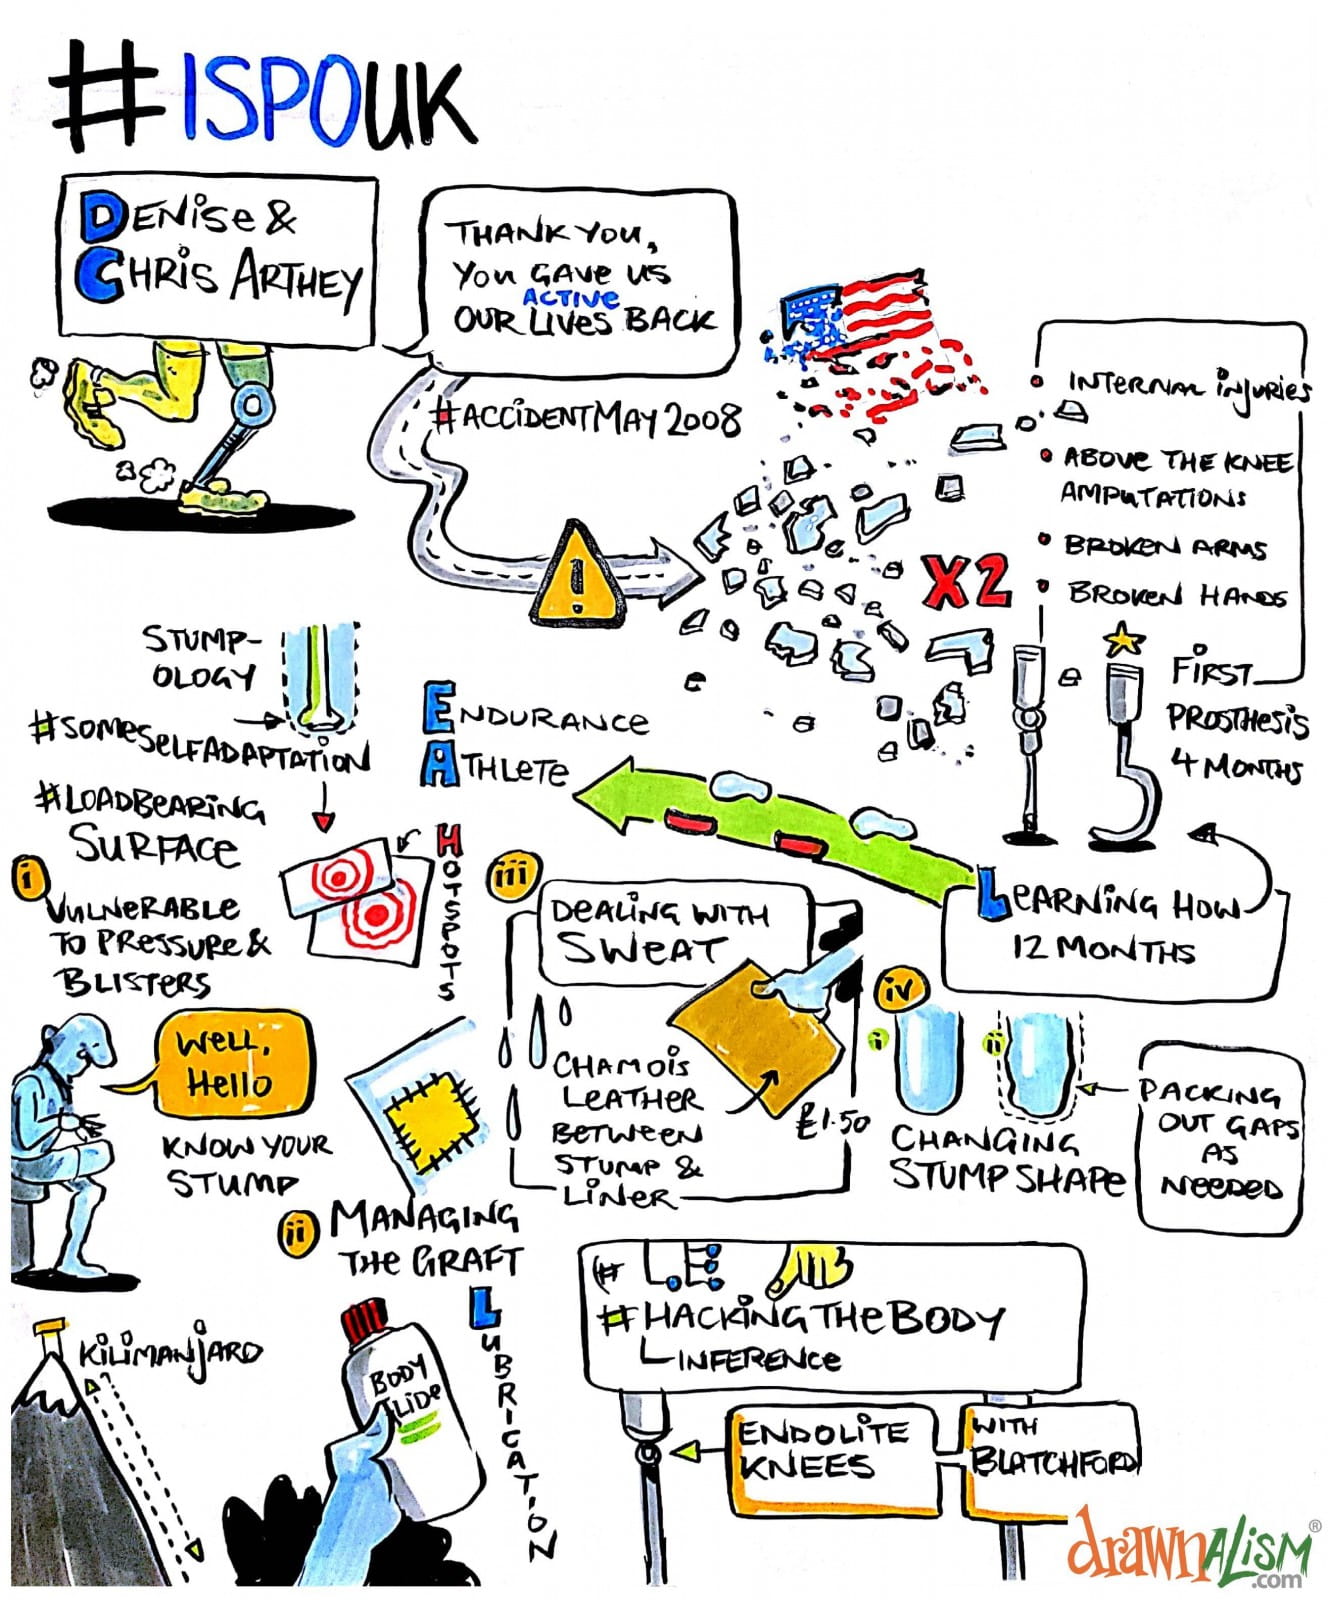 #ISPOUK
DENISE &
CHRIS ARTHEY
THANK YOU,
YOU GAVE US
ACTIVE
OUR LIVES BACK
#ACCIDENTMAY2008
INTERNAL INJURIES
ABOVE THE KNEE
AMPUTATIONS
BROKEN ARMS
BROKEN HANDS
X2
!
FIRST
PROSTHESIS
4 MONTHS
LEARNING HOW
12 MONTHS
ENDURANCE
ATHLETE
STUMP-
OLOGY
#SOMESELFADAPTATION
#LOADBEARING
SURFACE
i
VULNERABLE
TO PRESSURE &
BLISTERS
HOTSPOTS
WELL,
HELLO
KNOW YOUR
STUMP
ii
MANAGING
THE GRAFT
iii
DEALING WITH
SWEAT
CHAMOIS
LEATHER
BETWEEN
STUMP &
LINER
£1.50
iv
i
ii
CHANGING
STUMP SHAPE
PACKING
OUT GAPS
AS
NEEDED
KILIMANJARO
BODY
GLIDE
LUBRICATION
#
#HACKINGTHEBODY
INFERENCE
ENDOLITE
KNEES
WITH
BLATCHFORD
drawnalism®
.com